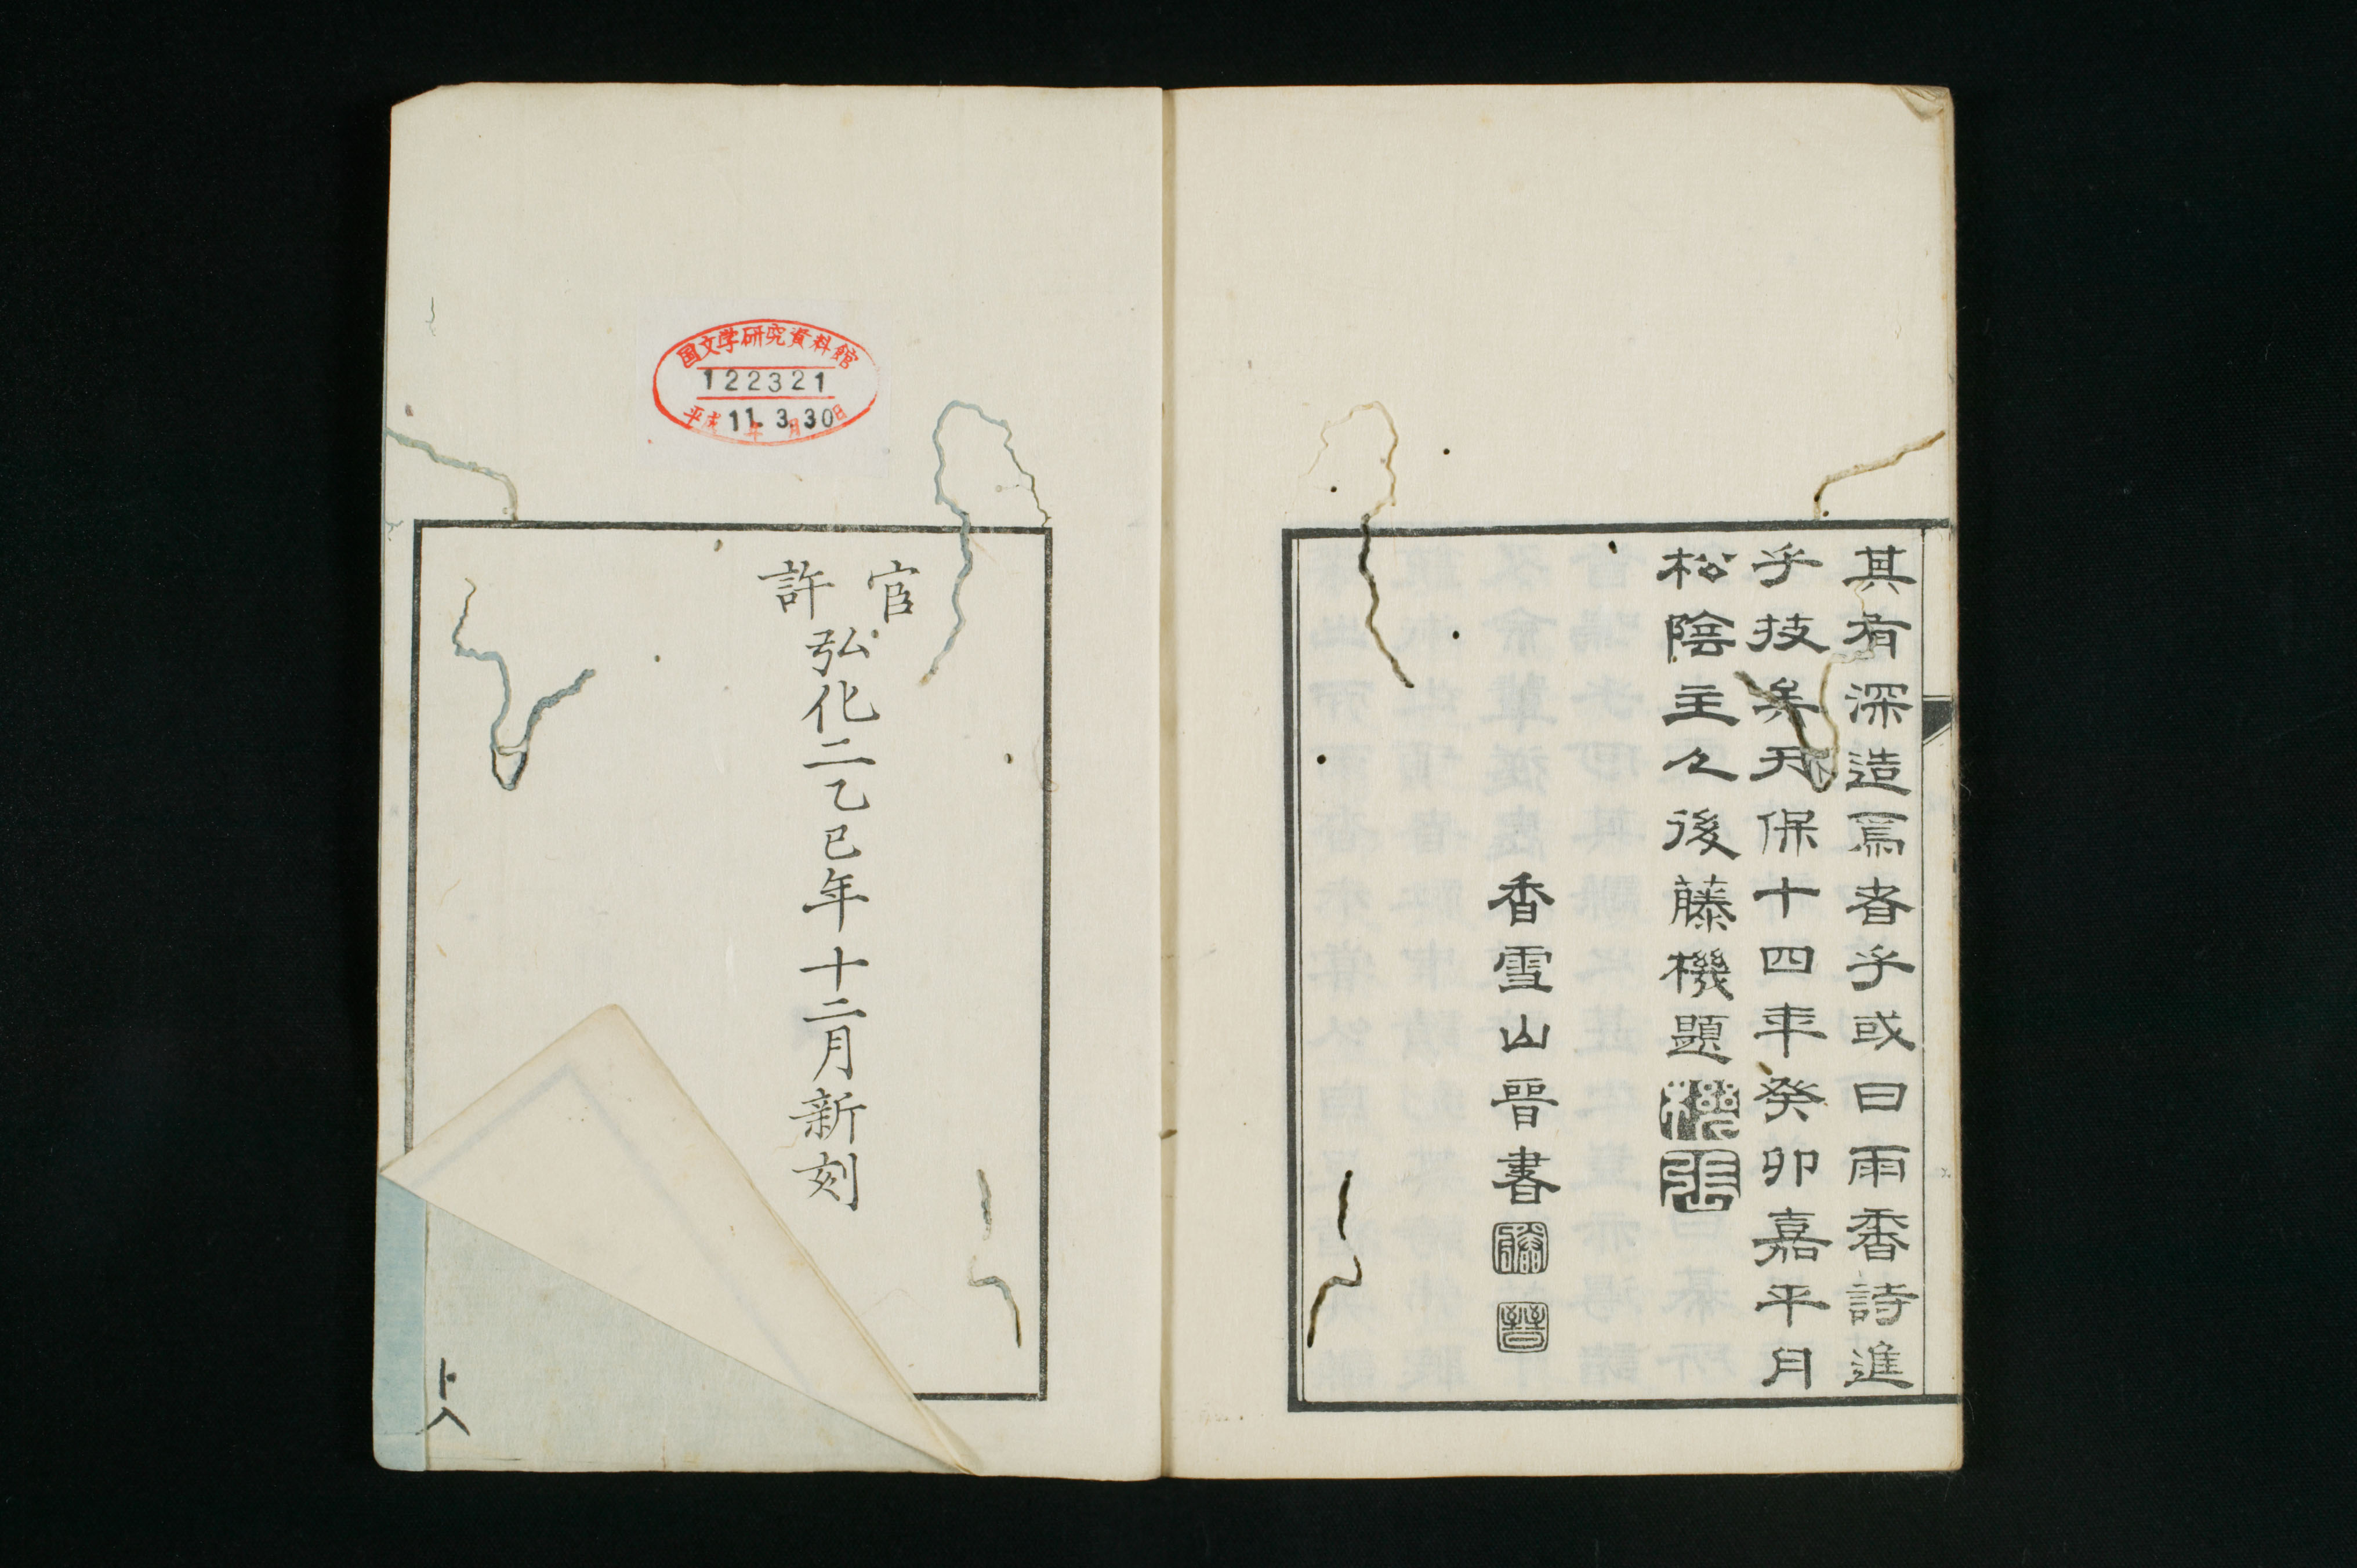 其有深造焉者乎或曰雨香詩進
乎技矣天保十四年癸卯嘉平月
松陰主人後藤機題
香雪山晉書
官許
弘化二乙巳年十二月新刻
国文学研究資料館
122321
平成11年3月30日